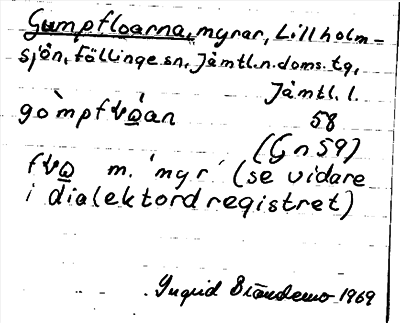 Gumpfloarna, myrar, Lillholm-
sjön, Föllinge sn, Jämtl. n. doms. tg,
Jämtl. l.
gòmpfvoan 58
(Gn 59)
fvo m. 'myr' (se vidare
i dialektordregistret)
Ingrid 1969